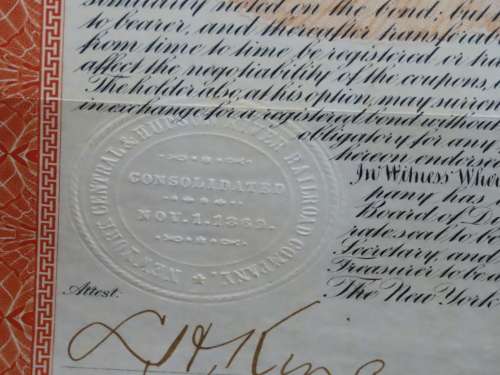 similarly noted on the bond; but
to bearer, and thereafter transferab
from time to time be registered or tra
affect the negotiability of the coupons,
The holder also, at his option, may surren
in exchange for a registered bond without
obligatory for any
hereon endorse
In Witness Whe
pany has
Board of Di
rate seal to be
Secretary, and
Treasurer to be a
The New York
NEW YORK CENTRAL & HUDSON RIVER RAILROAD COMPANY
CONSOLIDATED
NOV. 1. 1869.
Attest: